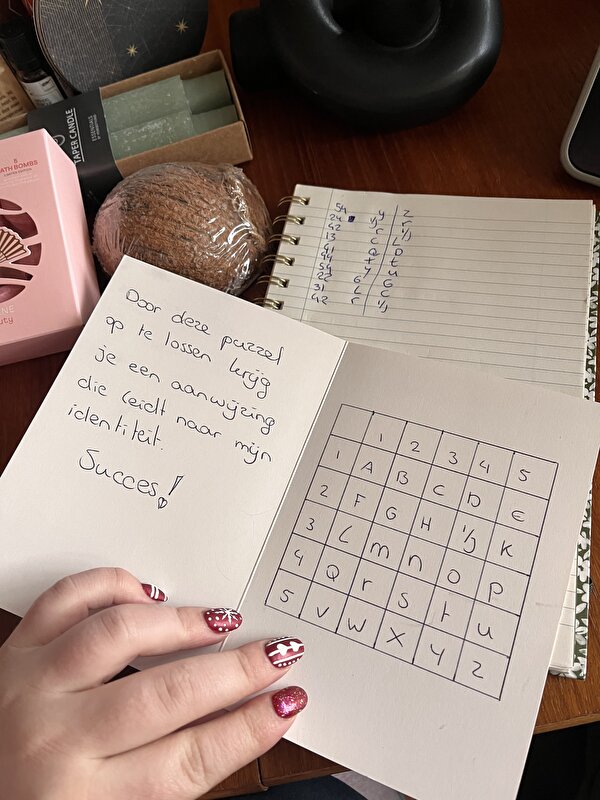 TAPER CANDLE
ESSENTIALS
5
ATH BOMBS
NE
uty
54 y z
24 i/j r
42 r i/j
13 c L
41 Q D
44 t t
54 y u
22 G G
31 L C
42 r i/j
Door deze puzzel
op te lossen krijg
je een aanwijzing
die leidt naar mijn
identiteit.
Succes!
1 2 3 4 5
1 A B C D E
2 F G H i/j K
3 L m n o p
4 Q r s t u
5 V W X Y Z